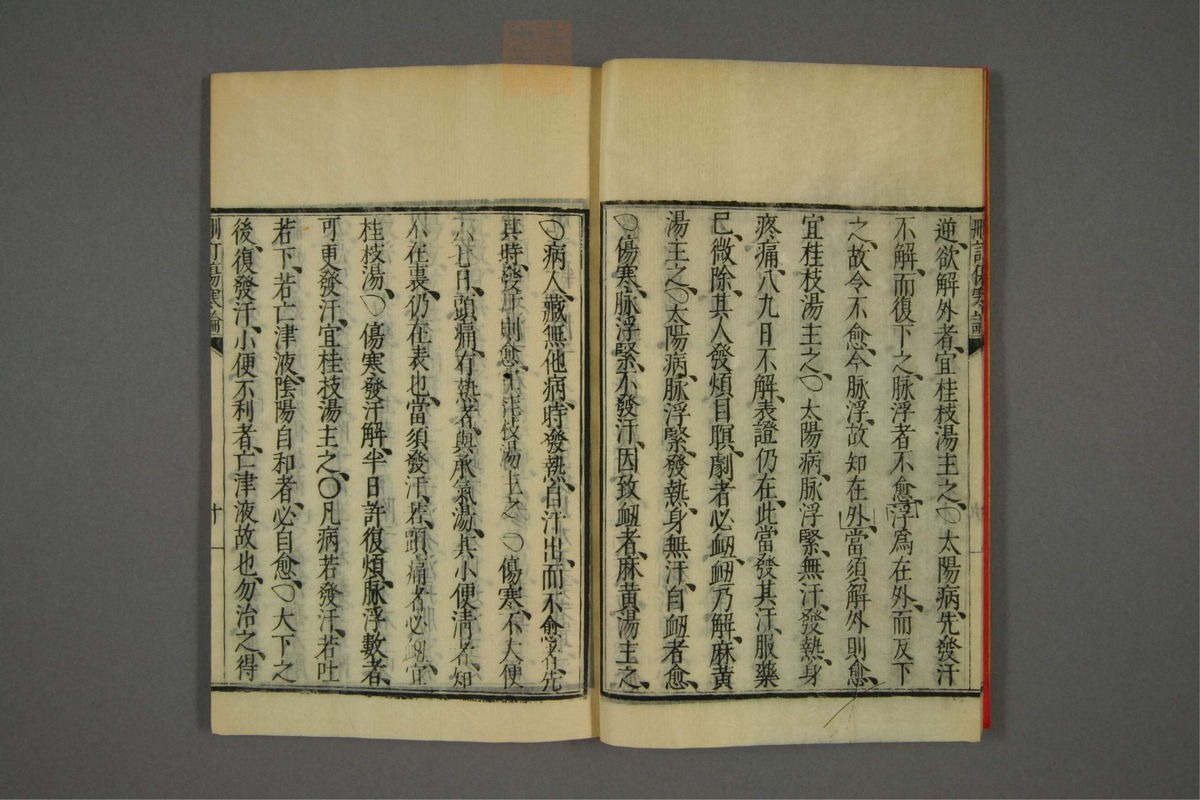 逆、欲解外者、宜桂枝湯主之、〇太陽病、先發汗
不解、而復下之、脉浮者不愈、浮爲在外、而反下
之、故令不愈、今脉浮、故知在外、當須解外則愈、
宜桂枝湯主之、〇太陽病、脉浮緊、無汗發熱、身
疼痛、八九日不解、表證仍在、此當發其汗、服藥
已微除、其人發煩目瞑、劇者必衂、衂乃解、麻黃
湯主之、〇太陽病、脉浮緊、發熱、身無汗、自衂者愈、
〇傷寒脉浮緊、不發汗、因致衂者、麻黃湯主之、
〇病人藏無他病、時發熱、自汗出、而不愈者、先
其時、發汗則愈、桂枝湯主之、〇傷寒、不大便
六七日、頭痛、有熱者、與承氣湯、其小便清者、知
不在裏、仍在表也、當須發汗、若頭痛者必衂、宜
桂枝湯、〇傷寒發汗解、半日許復煩、脉浮數者、
可更發汗、宜桂枝湯主之、〇凡病若發汗、若吐
若下、若亡津液、陰陽自和者、必自愈、〇大下之
後、復發汗、小便不利者、亡津液故也、勿治之、得
刪訂傷寒論
十